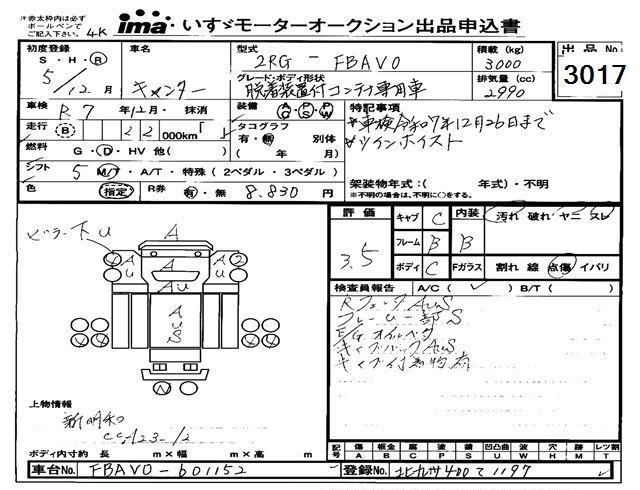 注 太枠内は必ず
ボールペンで
ご記入下さい。
4K
ima いすゞモーターオークション出品申込書
初度登録
S・H・R
5/12月
車名
キャンター
型式
2RG - FBAV0
グレード・ボディ形状
脱着装置付コンテナ専用車
積載(kg)
3000
排気量(cc)
2990
出品No
3017
車検 R 7年12月・抹消
装備 A/C P/S P/W
特記事項
車検令和7年12月26日まで
ツインホイスト
走行 (B) 22 000km
タコグラフ
有・無 別体
( 年 月)
燃料 G・D・HV 他( )
シフト 5 M/T・A/T・特殊(2ペダル・3ペダル)
架装物年式:( 年式)・不明
※不明の場合は、不明に○をする。
色 (指定) R券 有・無 8.830円
評価
3.5
キャブ C
フレーム B
ボディ C
内装 B
汚れ 破れ ヤニ スレ
Fガラス 割れ 線 点傷 イバリ
検査員報告 A/C( ) B/T( )
RフェンダAUS
フレーム一部S
E/Gオイルベタ
キャブバックAUS
キャブ付着物有
ピラー下U
A
A
U
A
U
A
U
A
2
U
A
U
S
上物情報
新明和
CC-123-12
ボディ内寸約 長 m×幅 m×高 m
記号
傷 A
板金 B
腐 C
塗 P
錆 S
凹凸曲 U
波 W
穴 H
跡 M
レツ割 T
車台No. FBAV0-601152
登録No. 北九州400て1197